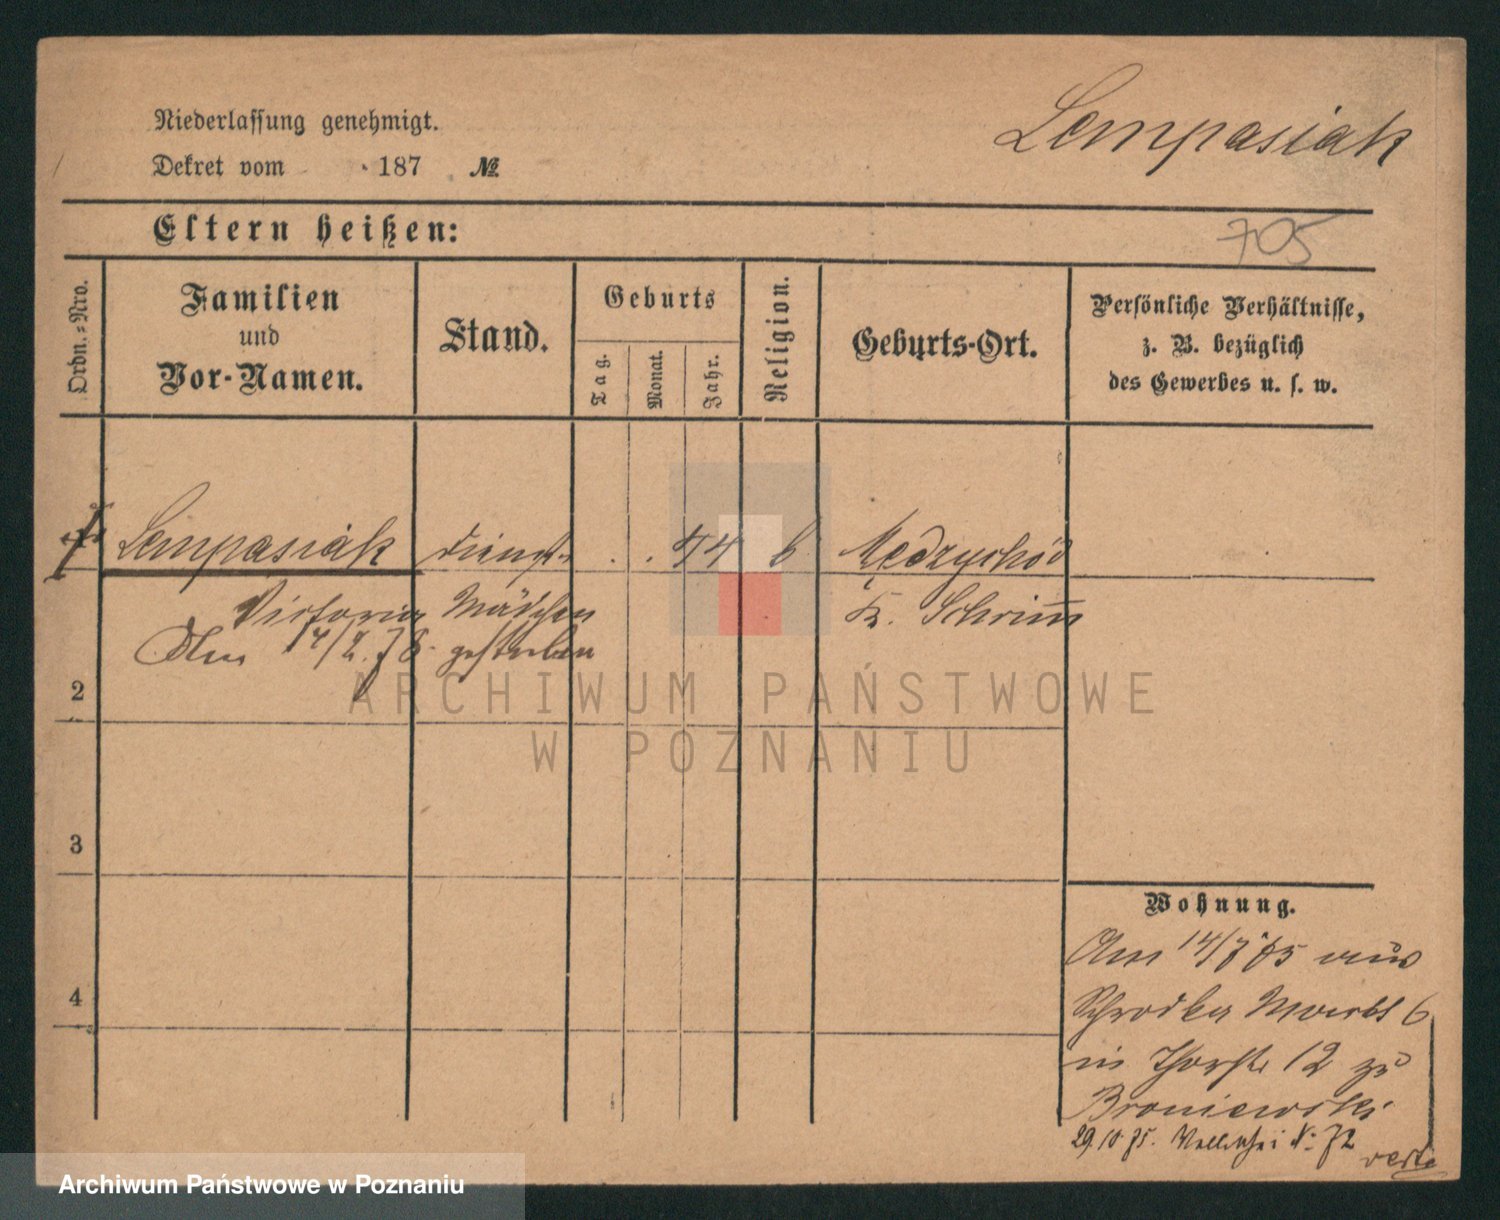 Niederlassung genehmigt.
Dekret vom 187 №
Lempasiak
Eltern heißen:
705
Ordn.=Nro.
Familien
und
Vor-Namen.
Stand.
Geburts
Tag.
Monat.
Jahr.
Religion.
Geburts-Ort.
Persönliche Verhältnisse,
z. B. bezüglich
des Gewerbes u. s. w.
Lempasiak Dienst- . . 54 Mędzychód
Victoria Mädchen Kr. Schrimm
Am 14/2. 78. gestorben
2
ARCHIWUM PAŃSTWOWE
W POZNANIU
3
4
Wohnung.
Am 14/7 75 aus
Schrodka Markt 6
in Thorstr 12 zu
Broniewski
29.10.75. Wallischei N: 72
verte
Archiwum Państwowe w Poznaniu